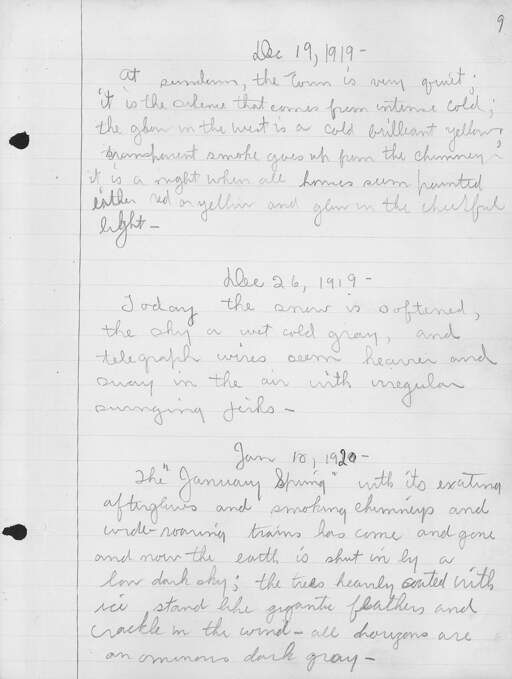 9
Dec 19, 1919 -
At sundown, the Town is very quiet;
it is the silence that comes from intense cold;
the glow in the west is a cold brilliant yellow;
transparent smoke goes up from the chimney;
it is a night when all homes seem painted
either red or yellow and glow in the cheerful
light -
Dec 26, 1919 -
Today the snow is softened,
the sky a wet cold gray, and
telegraph wires seem heavier and
sway in the air with irregular
swinging jerks -
Jan 10, 1920 -
The "January Spring" with its exciting
afterglows and smoking chimneys and
wide-roaring trains has come and gone
and now the earth is shut in by a
low dark sky; the trees heavily coated with
ice stand like gigantic feathers and
crackle in the wind - all horizons are
an ominous dark gray -